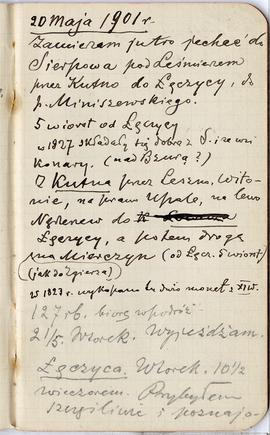 20 Maja 1901 r.
Zamierzam jutro jechać do
Sierpowa pod Leśmierzem
przez Kutno do Łęczycy, do
p. Miniszewskiego.
5 wiorst od Łęczycy
w 1827 składały się dobra z S. i ze wsi
Konary. (nad Bzurą?)
Z Kutna przez Leszno, Wito-
nie, na prawo Upale, na lewo
Nędzerzew do
Łęczycy, a potem drogą
na Mierczyn (od Łęcz. 5 wiorst)
(jak do Zgierza)
w 1827 r. wykopano dwie monet z XI w.
127 rb. biorę w podróż.
21/5. Wtorek. Wyjeżdżam.
Łęczyca. Wtorek. 10 1/2
wieczorem. Przybyłem
szczęśliwie i poznaję-